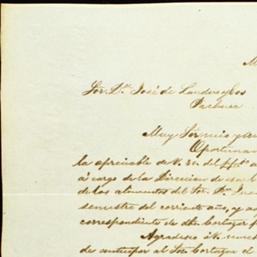 M
Sor. Dn. José de Landero y Cos
Pachuca
Muy Sor mio y
Oportuna
la apreciable de V. 31. del ppdo. a
á cargo de la Direccion de
de los alimentos del Sor. Dn.
semestre del corriente año, y
correspondiente de dho Cortazar
Agradesco á V.
de anticipar al Sor Cortazar el